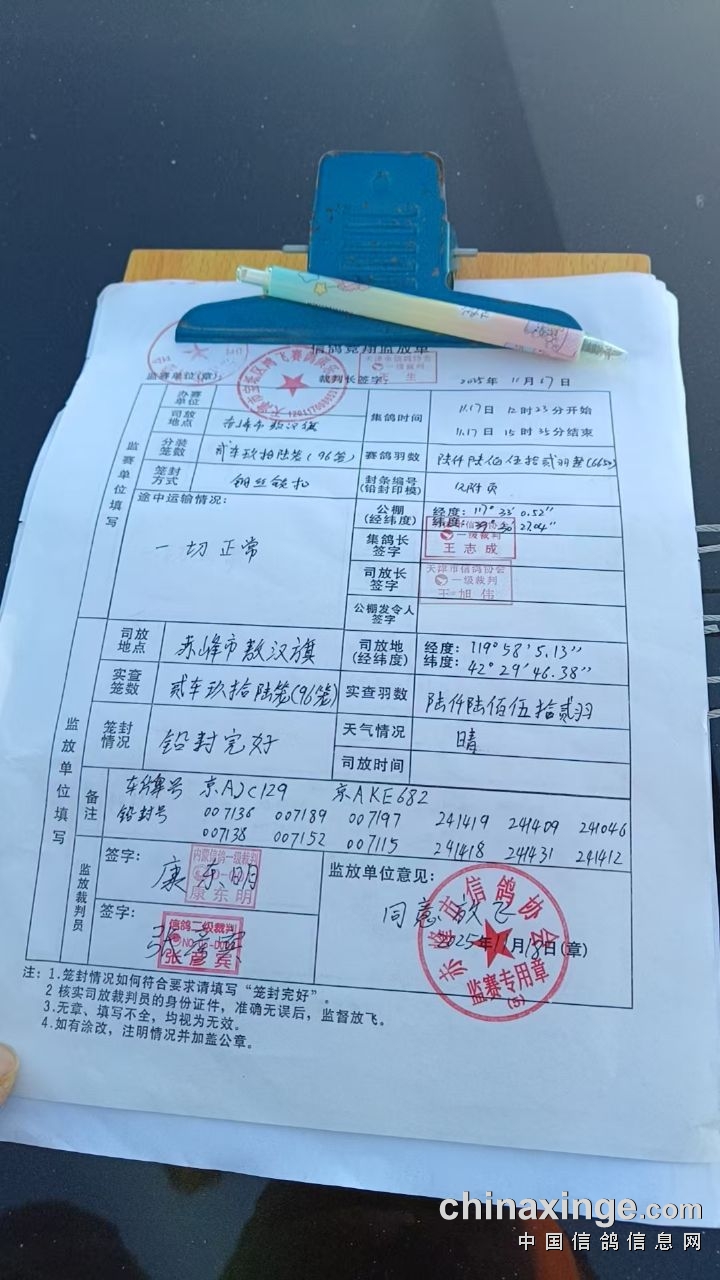 信鸽竞翔监放单
监赛单位(章):
裁判长签字:
2025年 11月17日
天津市信鸽协会
一级裁判
王 生
监赛单位填写
办赛单位
集鸽时间
11月17日 12时23分开始
11月17日 15时35分结束
司放地点
赤峰市敖汉旗
分装笼数
贰车玖拾陆笼(96笼)
赛鸽羽数
陆仟陆佰伍拾贰羽整
笼封方式
钢丝铁扣
封条编号
(铅封印模)
见附页
途中运输情况:
一切正常
公棚
(经纬度)
经度: 117° 33′ 0.52″
纬度: 39°
集鸽长签字
一级裁判
王志成
司放长签字
天津市信鸽协会
一级裁判
王旭伟
公棚发令人签字
监放单位填写
司放地点
赤峰市敖汉旗
司放地
(经纬度)
经度: 119°58′5.13″
纬度: 42°29′46.38″
实查笼数
贰车玖拾陆笼(96笼)
实查羽数
陆仟陆佰伍拾贰羽
笼封情况
铅封完好
天气情况
晴
司放时间
备注
车牌号 京AJC129 京AKE682
铅封号 007136 007189 007197 241419 241409 241046
007138 007152 007115 241418 241431 241412
监放裁判员
签字:
康东明
内蒙信鸽一级裁判
康东明
签字:
张彦宾
信鸽二级裁判
张彦宾
监放单位意见:
同意放飞
2025年11月18日(章)
赤峰市信鸽协会
监赛专用章
(5)
注: 1.笼封情况如何符合要求请填写“笼封完好”。
2 核实司放裁判员的身份证件，准确无误后，监督放飞。
3.无章、填写不全，均视为无效。
4.如有涂改，注明情况并加盖公章。
chinaxinge.com
中国信鸽信息网